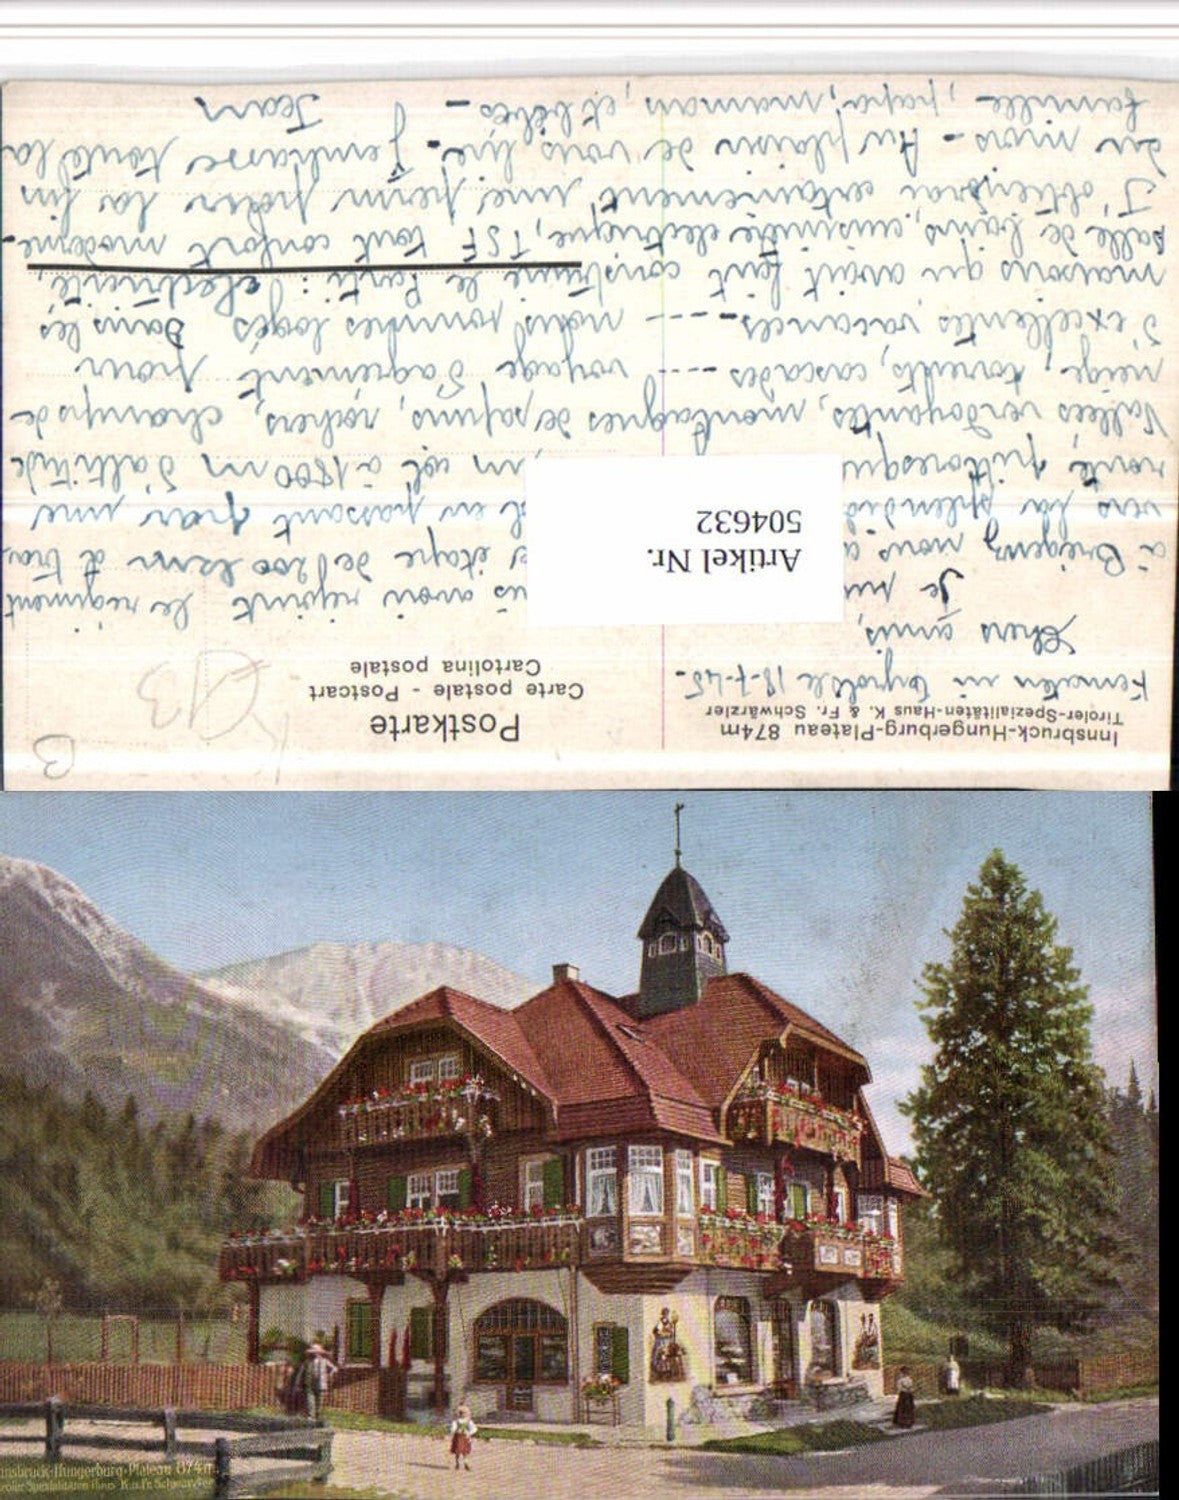 Innsbruck-Hungerburg-Plateau 874m
Tiroler-Spezialitäten-Haus K. & Fr. Schwärzler
Postkarte
Carte postale - Postcart
Cartolina postale
C 13
B
en Tyrol le 18-7-45-
Chers amis,
Je avoir rejoint le régiment
à Bregenz nous étape de 200 km à
vers la en passant par une
route col à 1800 m d'altitude
Vallées verdoyantes, montagnes de sapins, rochers, champs de
neige, torrents, cascades ---- voyage d'agrément pour
d'excellentes vacances ---- nous sommes logés dans les
maisons qu' avait fait construire le Parti : électricité,
salle de bains, cuisinière électrique, TSF tout confort moderne.
J'obtiendrai certainement une perm pour la fin
du mois - Au plaisir de vous lire - J'embrasse toute la
famille, papa, maman, et bébés -
Jean
Artikel Nr.
504632
Innsbruck-Hungerburg-Plateau 874m.
Tiroler Spezialitäten Haus K. u. Fr. Schwärzler